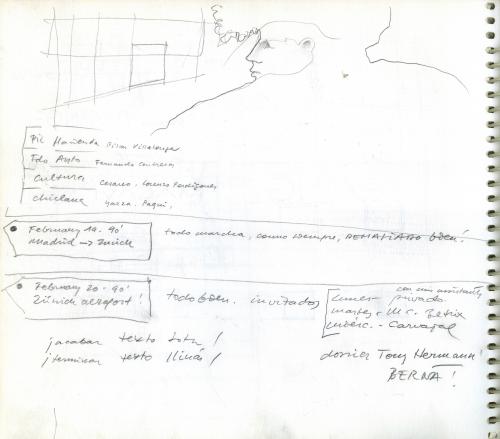 Pil Hacienda
Fdo Ayto Fernando Contreras
Cultura Cesareo, Lorenzo
chiclana Yarza. Paqui,
February 19-90'
Madrid → Zurich
todo marcha, como siempre, DEMASIADO bien!
February 20-90'
Zürich aeroport!
todo bien. invitados
con mis assistants
lunes - privado
martes - M.C. Betrix
miérc. - Carvajal
¡acabar texto Sota!
¡terminar texto llinás!
dossier Tony Hermann!
BERNA!